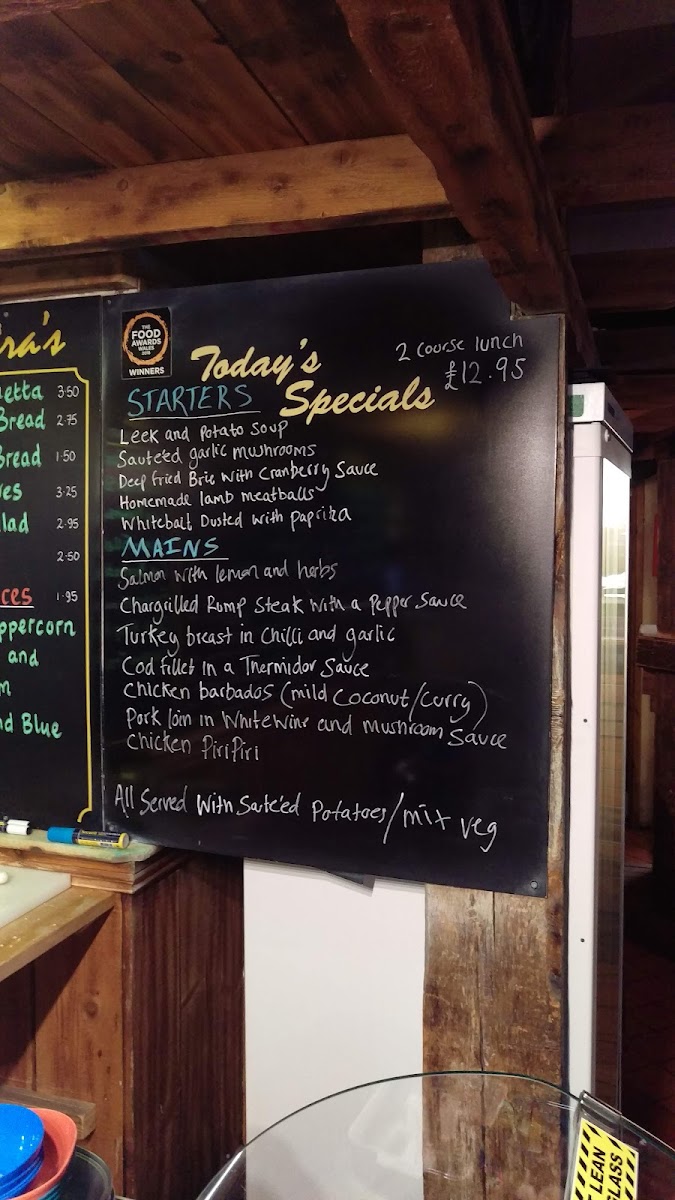 ra's
etta 3.50
Bread 2.75
Bread 1.50
es 3.25
lad 2.95
2.50
ces 1.95
ppercorn
and
m
nd Blue
THE
FOOD
AWARDS
WALES
WINNERS
Today's
Specials
2 course lunch
£12.95
STARTERS
Leek and Potato Soup
Sauteéd garlic mushrooms
Deep Fried Brie with Cranberry Sauce
Homemade lamb meatballs
Whitebait Dusted with Paprika
MAINS
Salmon with lemon and herbs
Chargrilled Rump Steak with a Pepper Sauce
Turkey breast in Chilli and garlic
Cod fillet in a Thermidor Sauce
Chicken barbados (mild Coconut/Curry)
Pork loin in White wine and Mushroom Sauce
Chicken Piri Piri
All Served With Sauteéd Potatoes/mix veg
LEAN
LASS